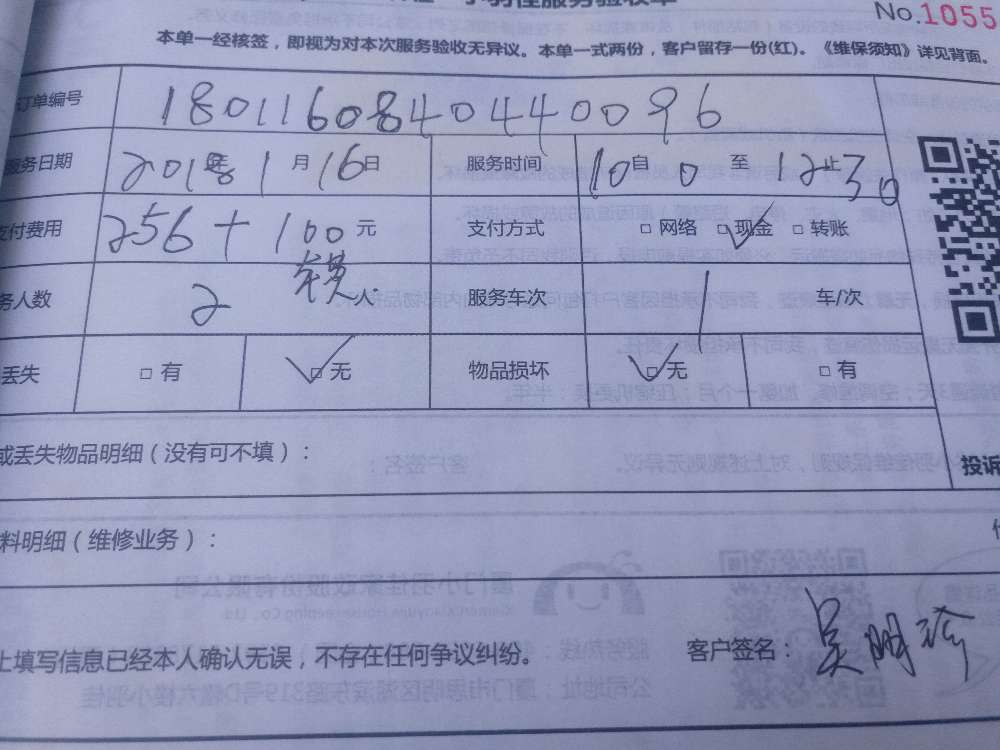 小羽佳服务验收单
No.1055
本单一经核签，即视为对本次服务验收无异议。本单一式两份，客户留存一份(红)。《维保须知》详见背面。
订单编号 1801160840440096
服务日期 2018年1月16日 服务时间 10自0至12止30
支付费用 256+100元 支付方式 □ 网络 □ 现金 □ 转账
务人数 2人 服务车次 1 车/次
丢失 □ 有 □ 无 物品损坏 □ 无 □ 有
或丢失物品明细（没有可不填）：
投诉
料明细（维修业务）：
上填写信息已经本人确认无误，不存在任何争议纠纷。 客户签名：吴明珍